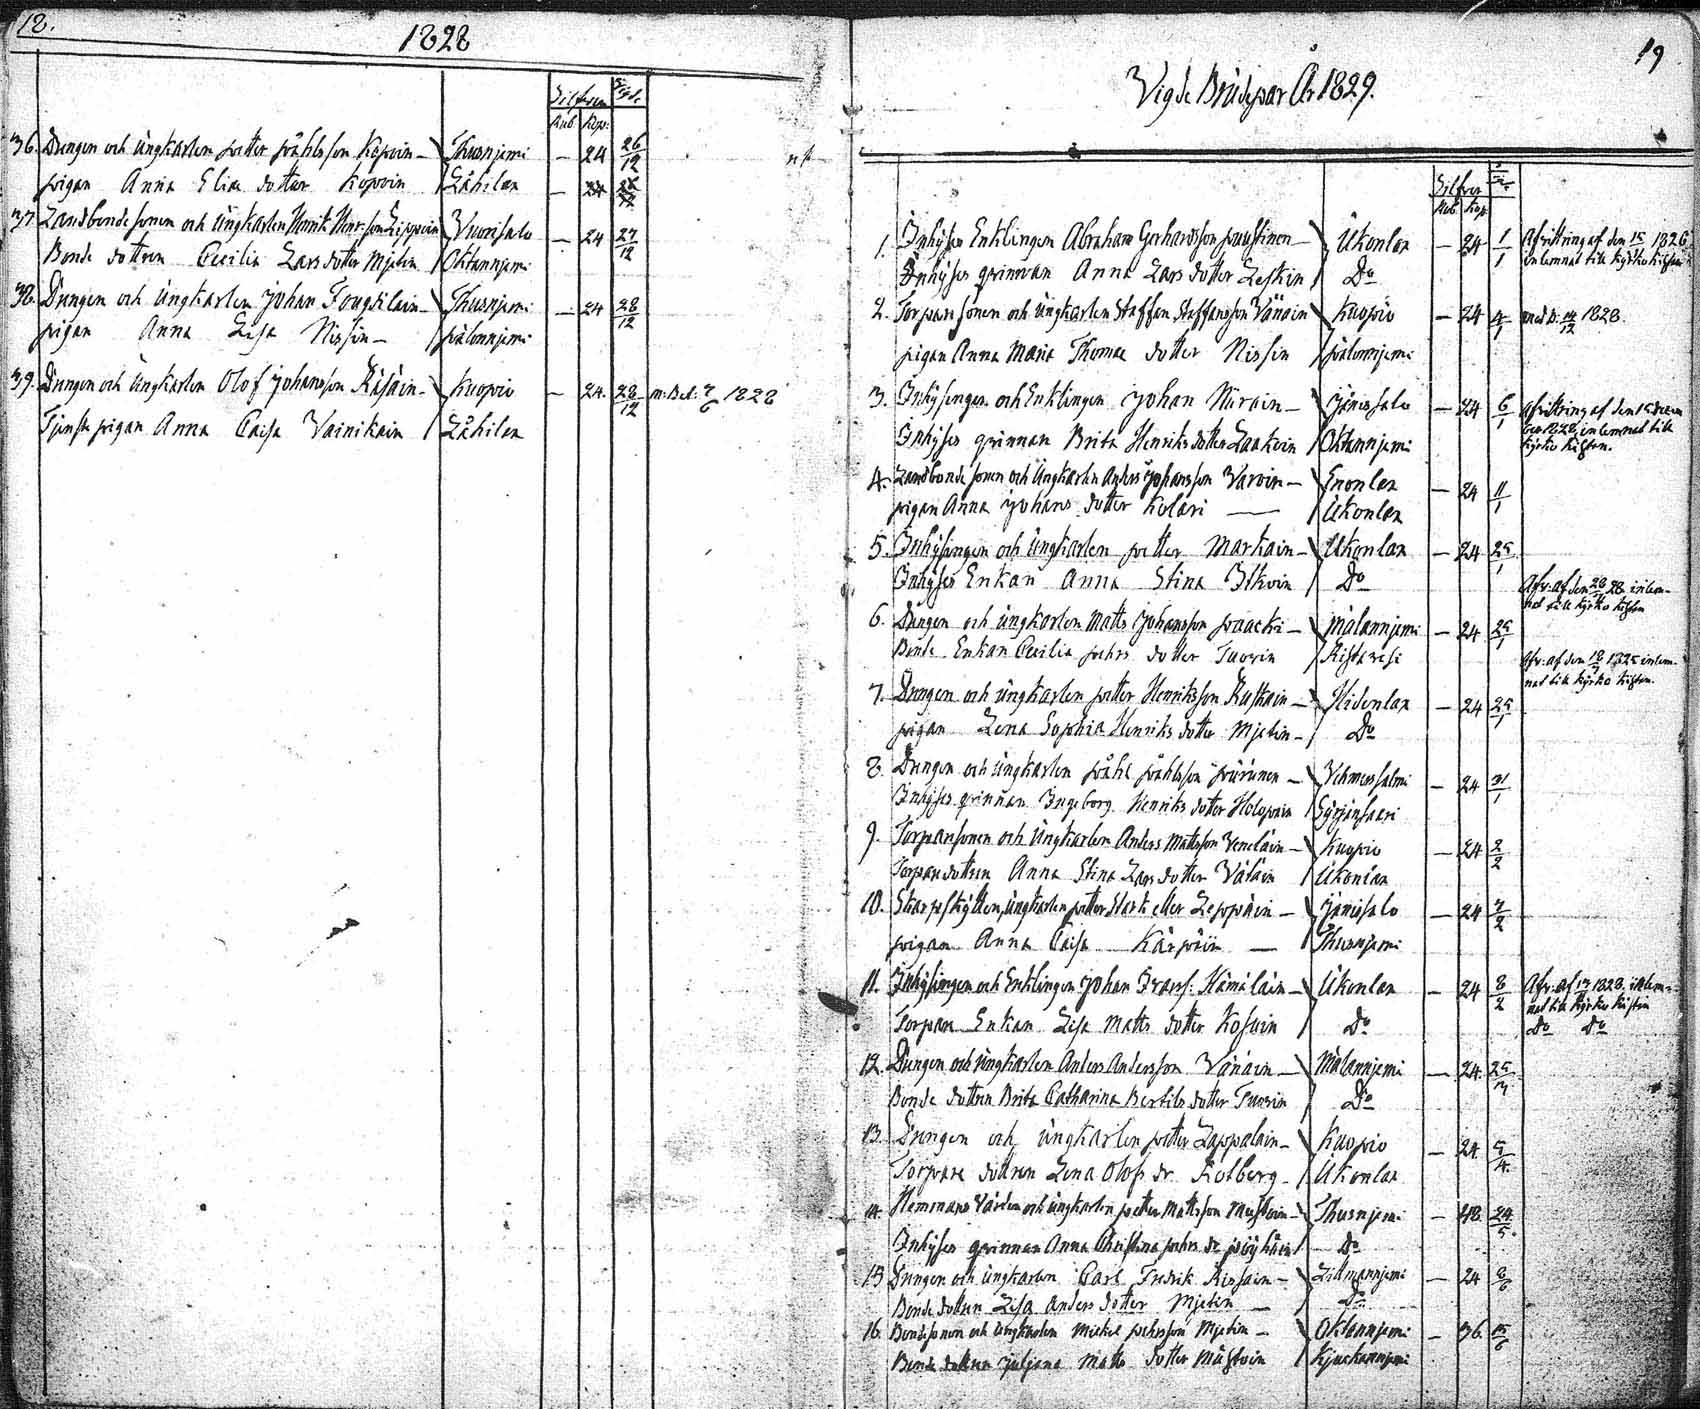 18.
1828
Silfver
Rub. Kop.
36. Drengen och ungkarlen petter påhlsson Kopoin — Thusnjemi — 24 26/12
pigan Anna Elias dotter Kopoin Låhilax — 24
37. Landbonde sonen och ungkarlen Henrik Henrsson Lippoin Vuorisalo — 24 27/12
Bonde dottren Cecilia Lars dotter Mjetin Oktannjemi
38. Drengen och ungkarlen Johan Toupilain — Thusnjemi — 24 28/12
pigan Anna Lisa Nissin — pålonnjemi
39. Drengen och ungkarlen Olof Johansson Räsäin — Kuopio — 24. 28/12 m: Bet: 7/6 1828
Tjenste pigan Anna Caisa Vainikain Låhilax
19
Vigde Brudepar År 1829.
Silfver
Rub. Kop.
1. Inhyses Enklingen Abraham Gerhardsson paustinen — Ukonlax — 24 1/1 Afvittring af den 15/ 1826 inlemnad till kyrko kistan
Inhyses qvinnan Anna Lars dotter Leskin Do
2. Torpare sonen och ungkarlen Staffan Staffansson Vänäin Kuopio — 24 4/1 med B: 14/12 1828.
pigan Anna Maria Thomae dotter Nissin pålonnjemi
3. Inhysingen och Enklingen Johan Hirvin — Jänissalo — 24 6/1 Afvittring af den
1828, inlemnad till
kyrko kistan.
Inhyses qvinnan Brita Henriks dotter Laakoin Oktannjemi
4. Landbonde sonen och Ungkarlen Anders Johansson Varoin — Enonlax — 24 11/1
pigan Anna Johans dotter Kolari — Ukonlax
5. Inhysingen och ungkarlen petter Markain — Ukonlax — 24 25/1
Inhyses Enkan Anna Stina Itkoin Do
Afv: af den 28 inlem-
nad till kyrko kistan
6. Drengen och ungkarlen Matts Johansson paacki — Mälannjemi — 24 25/1
Bonde Enkan Cecilia pehrs dotter Tuorin Ristavesi
Afv: af den 18/ 1825 inlem-
nad till kyrko kistan.
7. Drengen och ungkarlen petter Henriksson Ruskain — Hidenlax — 24 25/1
pigan Lena Sophia Henriks dotter Mjetin — Do
8. Drengen och ungkarlen påhl påhlsson pürunen — Vehmersalmi — 24 31/1
Inhyses qvinnan Ingeborg Henriks dotter Holopain Syrjänsaari
9. Torparesonen och Ungkarlen Anders Mattsson Veneläin — Kuopio — 24 2/2
Torparedottren Anna Stina Lars dotter Vätäin Ukonlax
10. Skarpskytten, ungkarlen petter Stark eller Leppäin — Jänissalo — 24 7/2
pigan Anna Caisa Kärpäin — Thusnjemi
11. Inhysingen och Enklingen Johan Fransss: Hämäläin — Ukonlax — 24 8/2 Afv: af 1828 inlem-
nad till kyrko kistan
Torpare Enkan Lisa Matts dotter Kosuin Do Do Do
12. Drengen och Ungkarlen Anders Andersson Vänäin — Mälannjemi — 24. 25/
Bonde dottren Brita Catharina Bertils dotter Tuorin Do
13. Drengen och ungkarlen petter Lappalain — Kuopio — 24. 5/4.
Torpare dottren Lena Olofs dr Kolberg — Ukonlax
14. Hemmans Värden och ungkarlen petter Mattsson Mustoin — Thusnjemi — 48 24/5.
Inhyses qvinnan Anna Christina pehrs dr pöyhöin Do
15 Drengen och ungkarlen Carl Fredrik Rissain — Litmannjemi — 24 8/6
Bonde dottren Lisa Anders dotter Mjetin — Do
16. Bondesonen och ungkarlen Mickel pehrsson Mjetin — Oktannjemi — 36. 15/6
Bonde dottren Juljana Matts dotter Mustoin Kjuckannjemi